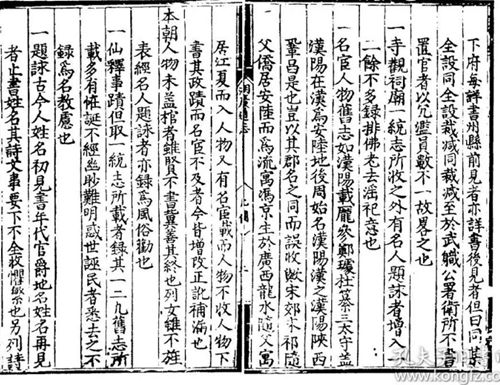 下府每詳書州縣前同亦詳書後見者但曰同其
全設同全設裁減同裁減至於武職公署衛所不書
置官者以冗濫員數不一故畧之也
一寺觀祠廟一統志所收之外有名人題詠者增入
二餘不多錄排佛老去淫祀意也
一名宦人物舊志如漢陽載龐參鄭璩杜棻三太守盖
漢陽在漢為安陸地後周始名漢陽漢之漢陽陝西
鞏昌是也豈以其郡名之同而誤收歟宋郊宋祁隨
父僑居安陸而為流寓馮京生於廣西龍水隨父寓
湖廣通志
居江夏而不入人物又有名宦載而人物不收人物下
書其政蹟而名宦不及者今皆增改正訛補漏也
本朝人物未盖棺者雖賢不書冀善其終也列女雖不旌
表經名人題詠者亦錄為風俗勸也
一仙釋事蹟但取一統志所載者錄其一二凡舊志所
載多有誕不經幽眇難明惑世誣民者悉去之不
錄為名教慮也
一題詠古今人姓名初見書年代官爵地名姓名再見
者止書姓名其詩文事要下不全收懼繁也另列詩